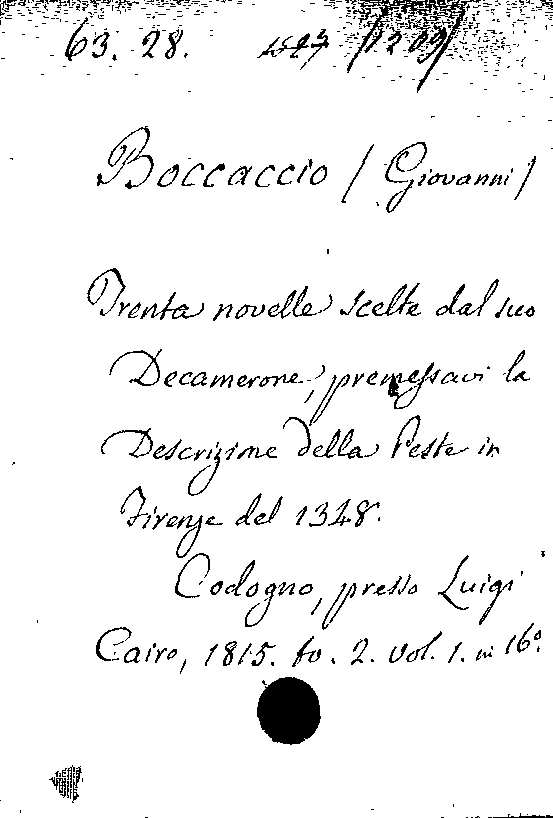 63. 28. 1527 /1209/
Boccaccio / Giovanni /
Trenta novelle scelte dal suo
Decamerone, premessavi la
Descrizione della Peste in
Firenze del 1348.
Codogno, presso Luigi
Cairo, 1815. to. 2. vol. 1. in 16º.